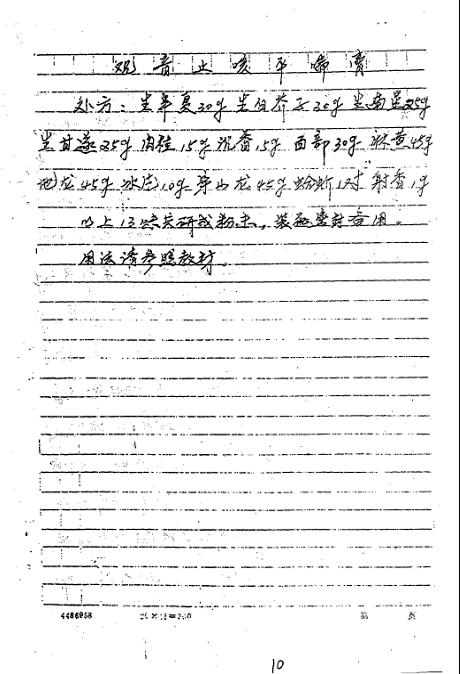 观音止咳平喘膏
处方：生半夏30g 生白芥子30g 生南星25g
生甘遂25g 肉桂15g 沉香15g 百部30g 麻黄45g
地龙45g 冰片10g 穿山龙45g 蛤蚧1对 射香1g
以上13味共研成粉末，装瓶密封备用。
用法请参照教材。
4486958 20×15=300 第 页
10